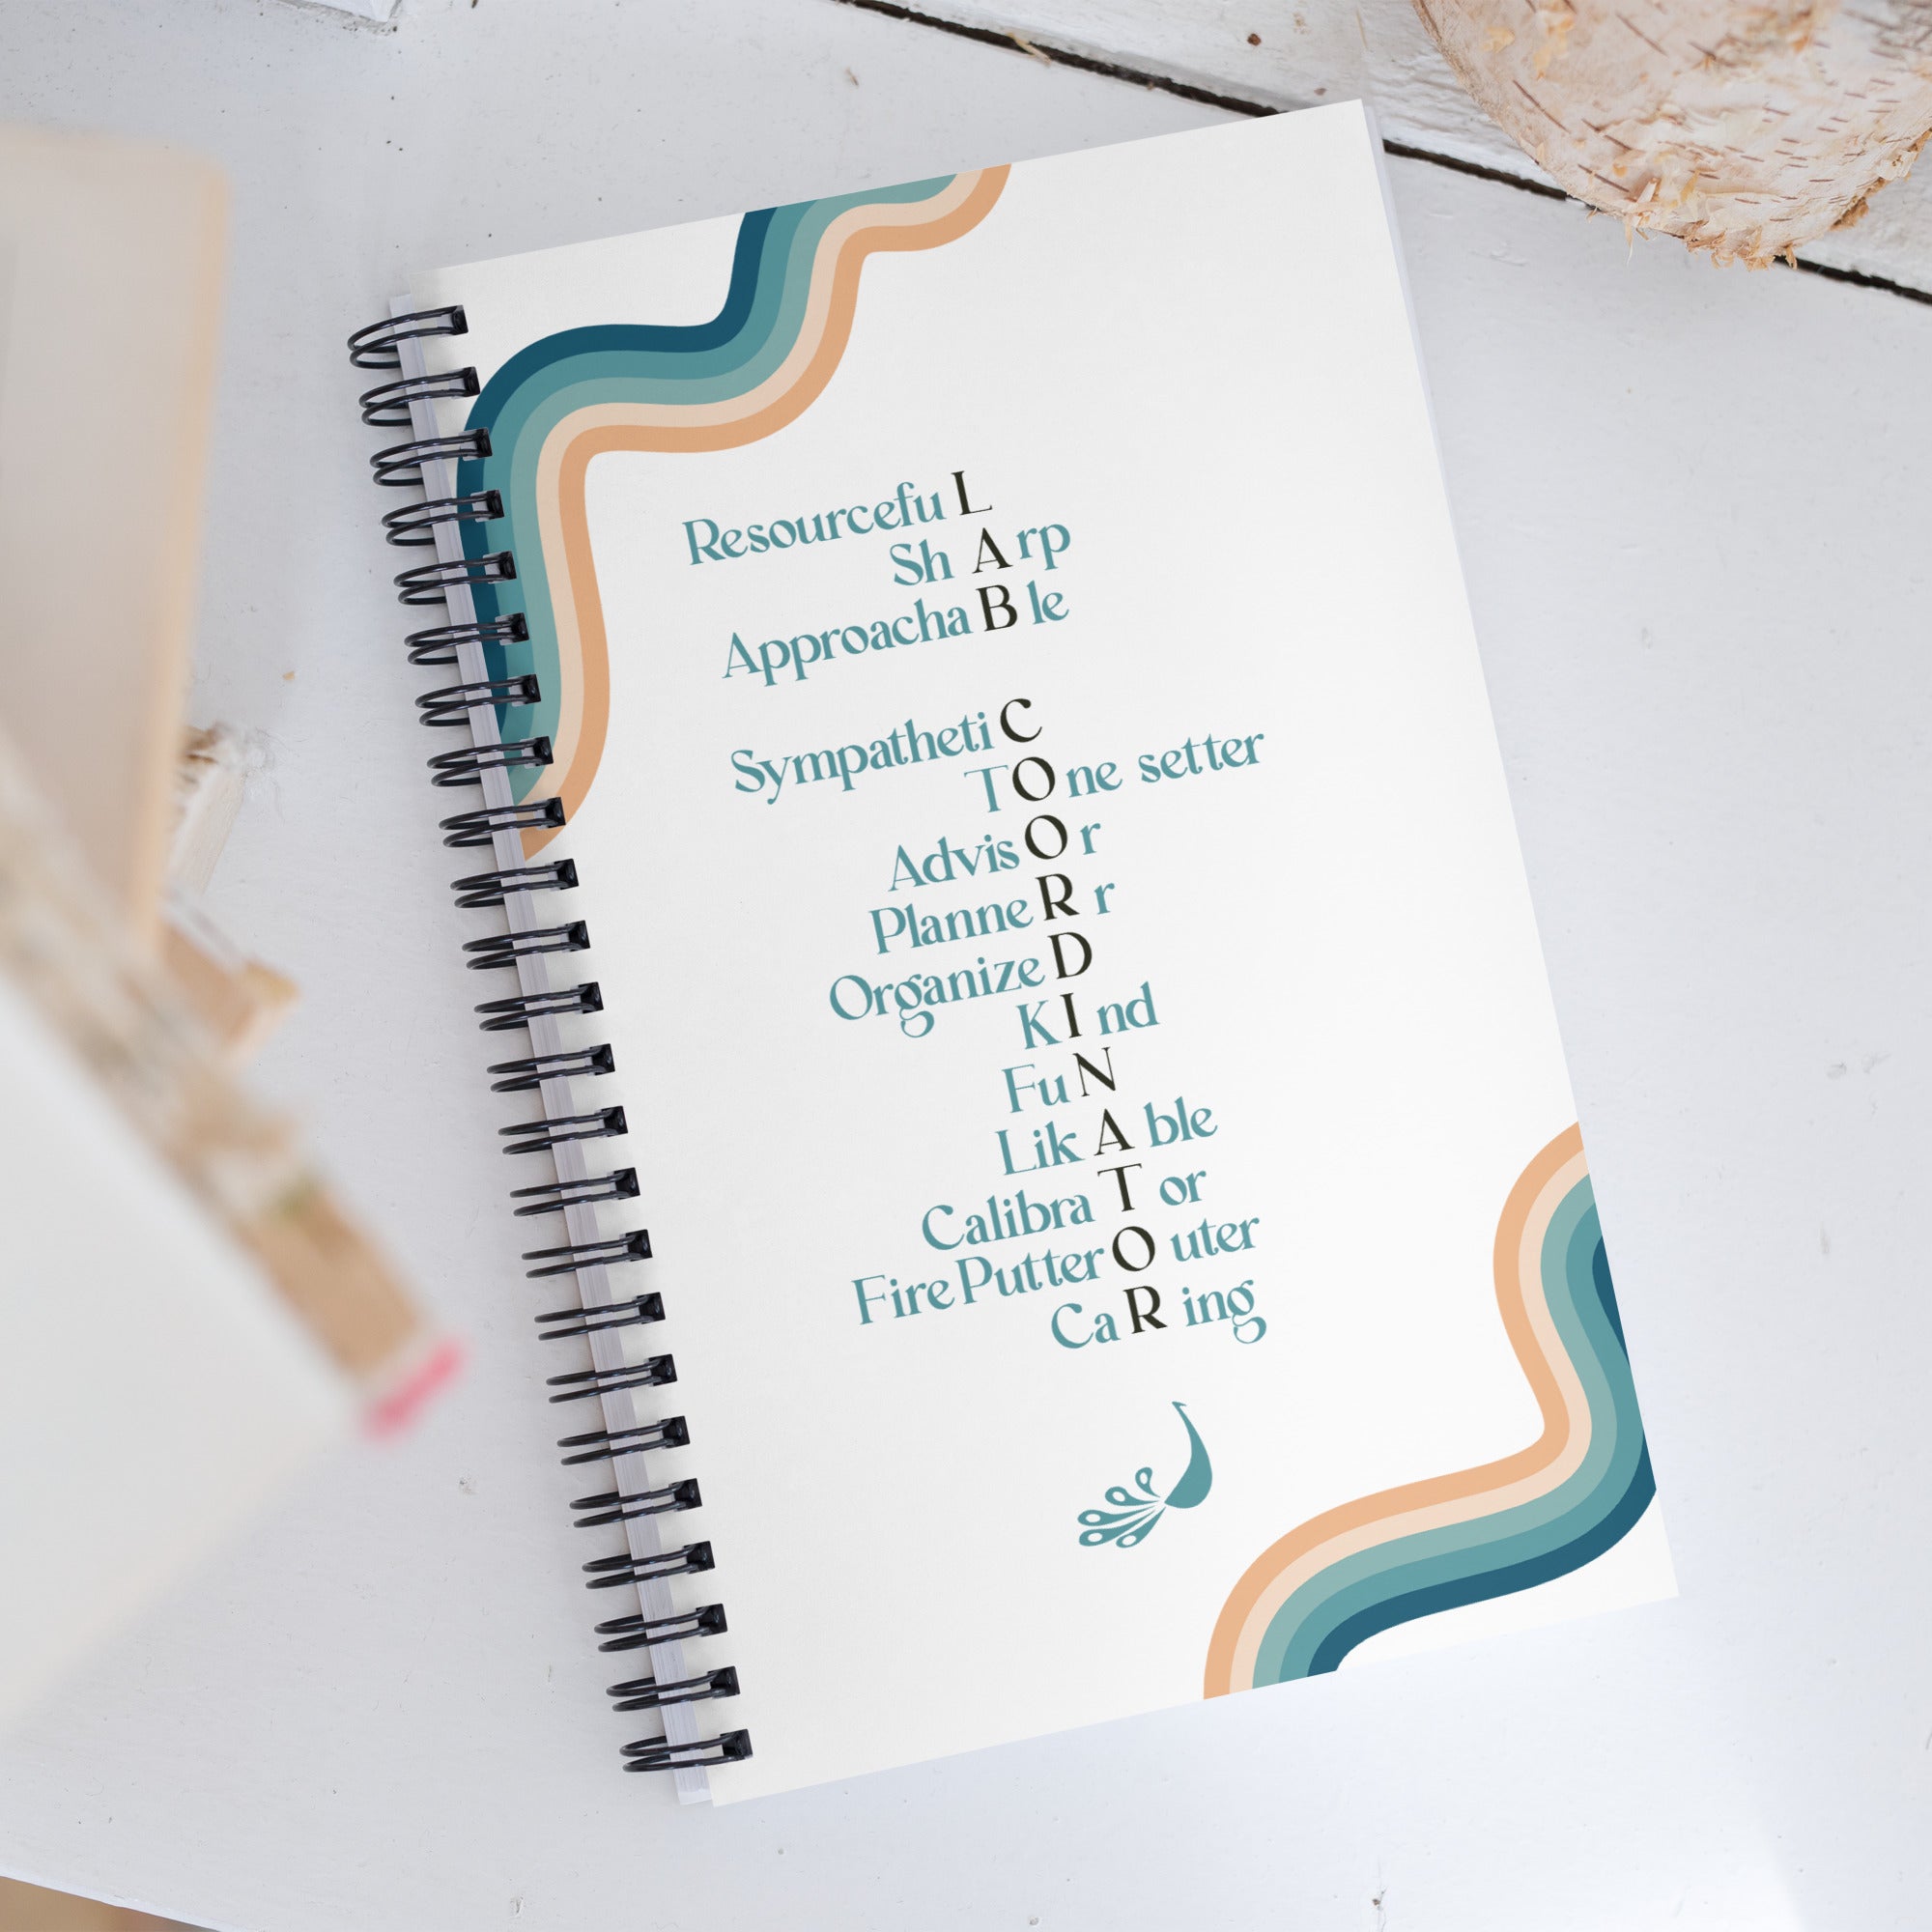 ResourcefuL
ShArp
ApproachaBle
SympathetiC
TOne setter
AdvisOr
PlanneRr
OrganizeD
KInd
FuN
LikAble
CalibraTor
FirePutterOuter
CaRing